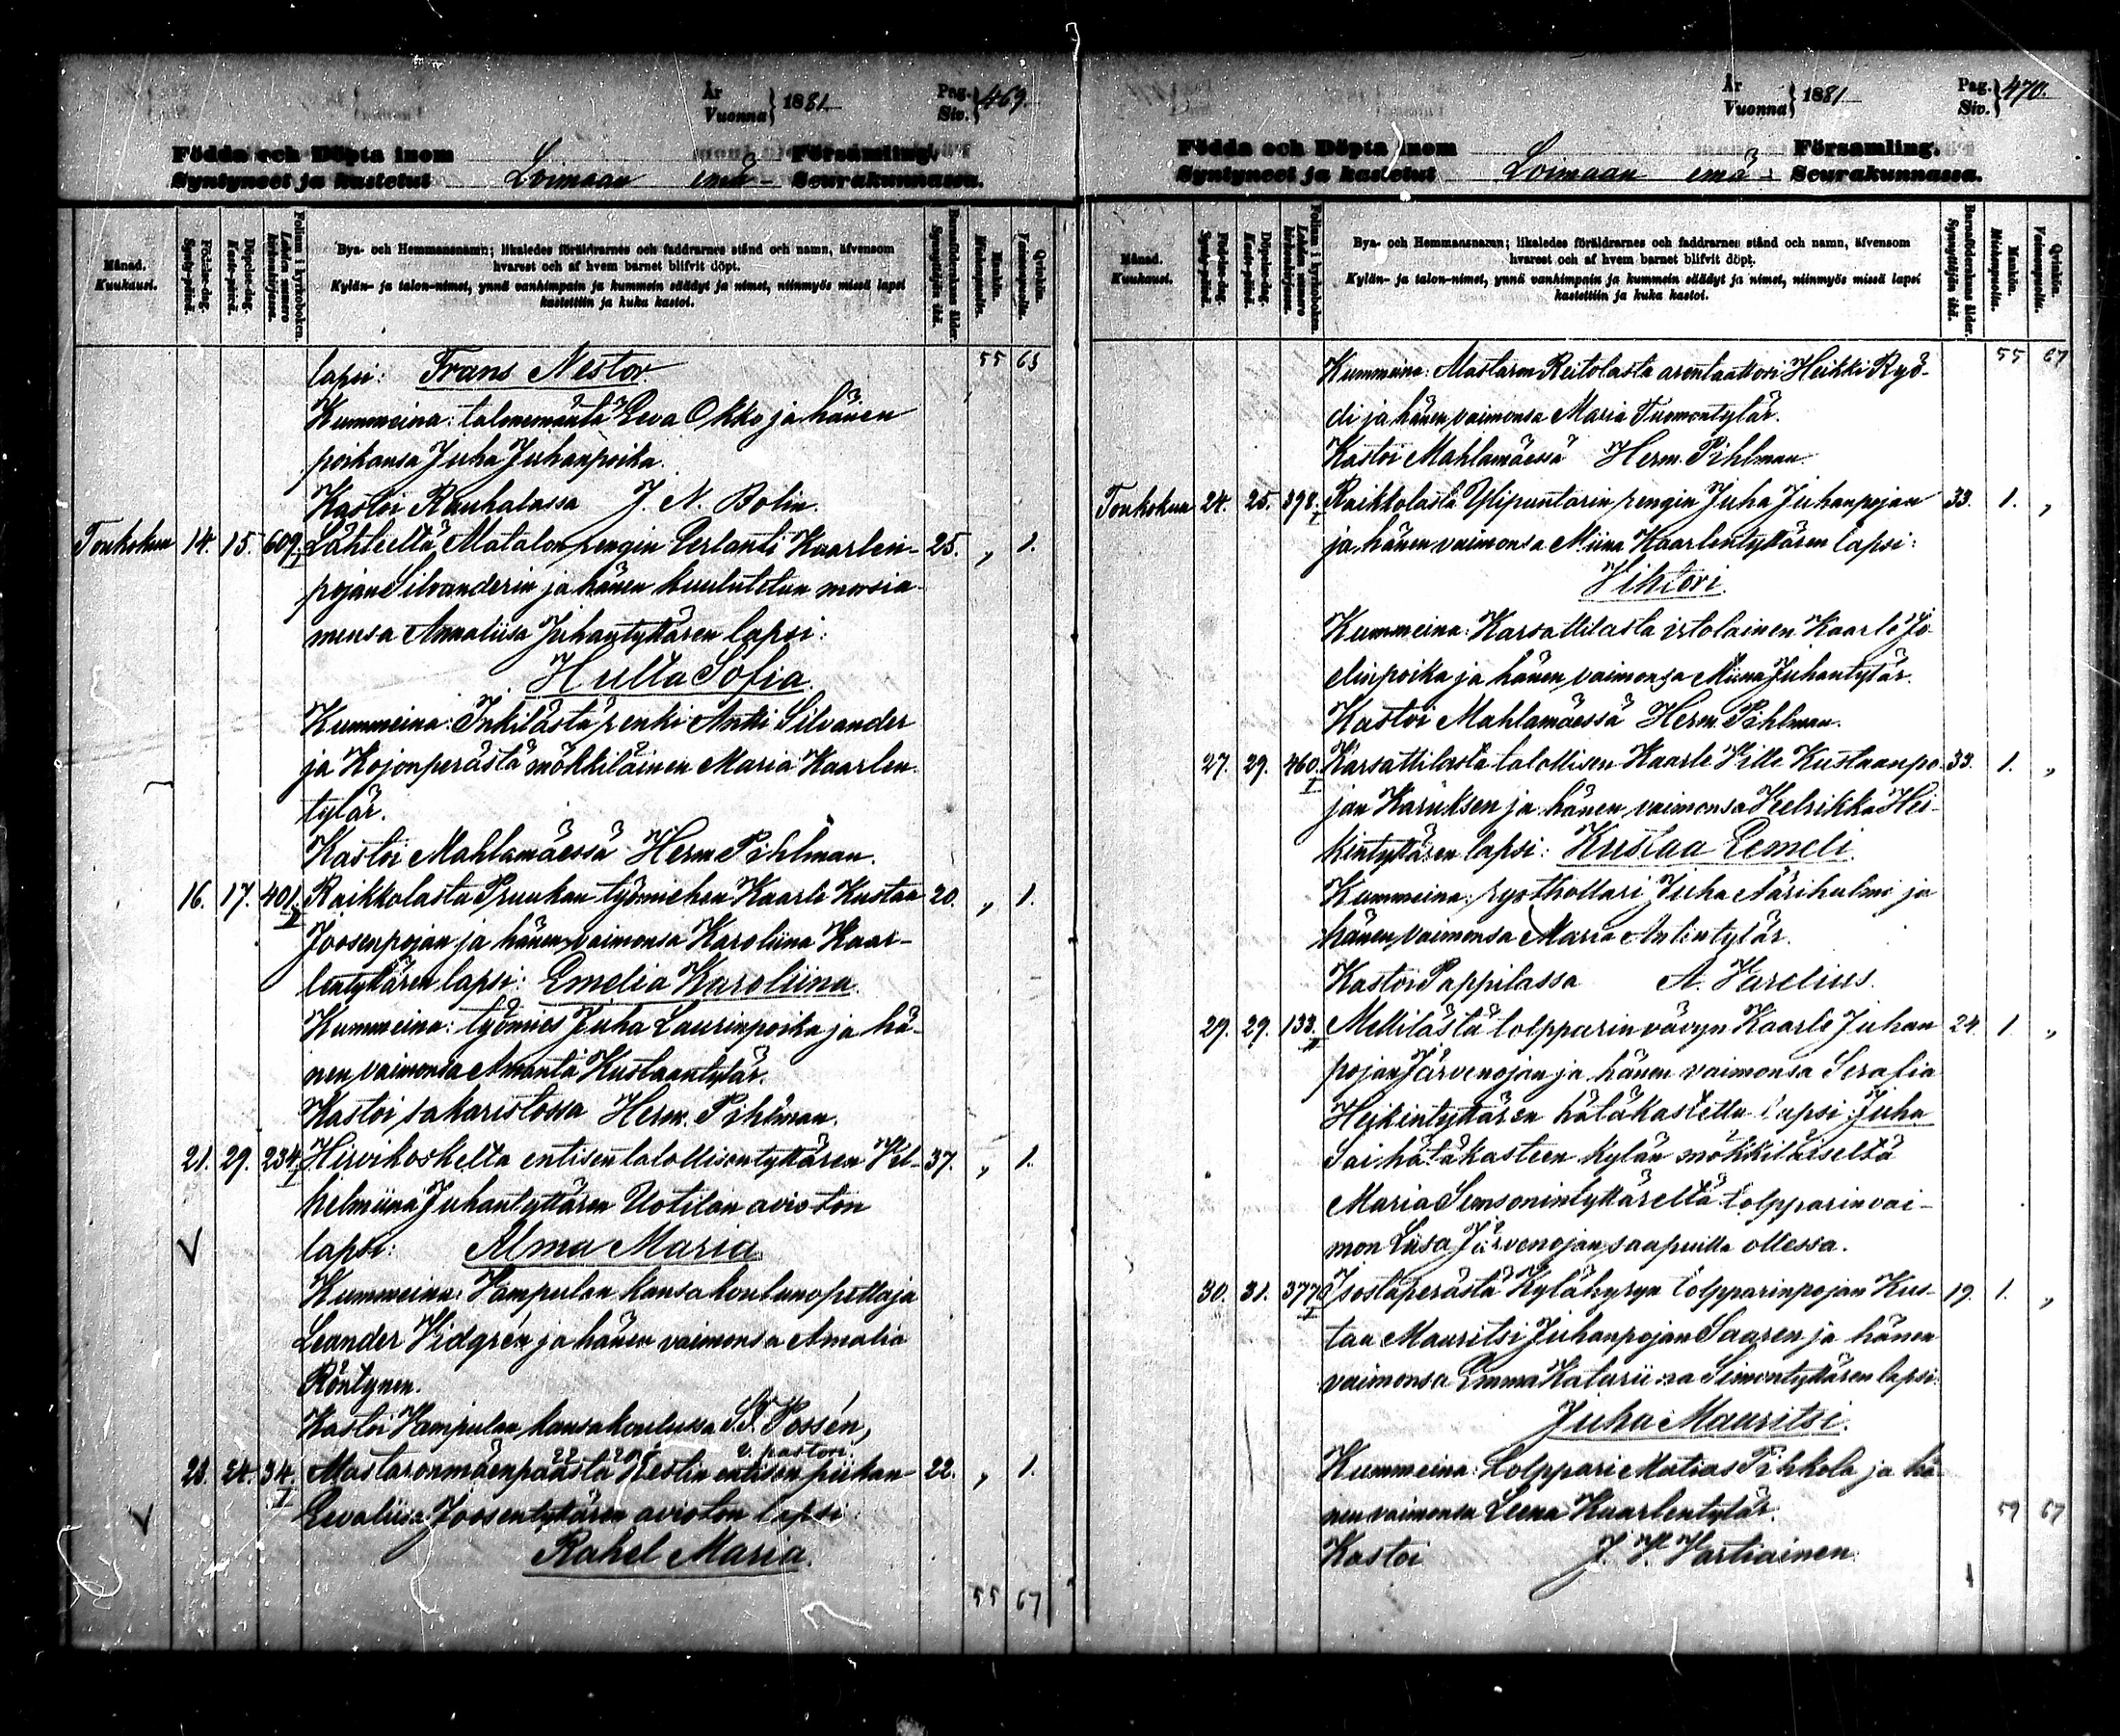 År
Vuonna } 1881 Pag. Siv. } 469.
Födda och Döpta inom Församling.
Syntyneet ja kastetut Loimaan emä- Seurakunnassa.
Månad. Kuukausi.
Födelse-dag. Synty-päivä.
Döpelse-dag. Kaste-päivä.
Folium i kyrkoboken. Lehden numero kirkonkirjassa.
Bya- och Hemmansnamn; likaledes föräldrarnes och faddrarnes stånd och namn, äfvensom
hvarest och af hvem barnet blifvit döpt.
Kylän- ja talon-nimet, ynnä vanhimpain ja kummein säädyt ja nimet, niinmyös missä lapsi
kastettiin ja kuka kastoi.
Barnaföderskans ålder. Synnyttäjän ikä.
Mankön. Miehenpuolia.
Qvinkön. Vaimonpuolia.
lapsi: Frans Nestor 55 63
Kummeina: talonemäntä Eeva Okko ja hänen
poikansa Juha Juhanpoika.
Kastoi Rauhalassa J. N. Bolin.
Toukokuu 14. 15. 609. I Lähteeltä Matalan rengin Eerlanti Kaarlen- 25. „ 1.
pojan Silvanderin ja hänen kuulutetun morsia-
mensa Annaliisa Juhantyttären lapsi:
Hulta Sofia.
Kummeina: Inkilästä renki Antti Silvander
ja Kojonperästä mökkiläinen Maria Kaarlen-
tytär.
Kastoi Mahlamäessä Herm. Pihlman.
16. 17. 401. II Raikkolasta Pruukan työmiehen Kaarle Kustaa 20. „ 1.
Joosenpojan ja hänen vaimonsa Karoliina Kaar-
lentyttären lapsi: Emelia Karoliina.
Kummeina: työmies Juha Laurinpoika ja hä-
nen vaimonsa Amanta Kustaantytär.
Kastoi sakaristossa Herm. Pihlman.
21. 29. 234. I Hirvikoskelta entisen talollisen tyttären Vil- 37. „ 1.
helmiina Juhantyttären Uotilan avioton
lapsi: Alma Maria.
Kummeina: Vampulan kansakoulunopettaja
Leander Vidgrén ja hänen vaimonsa Amalia
Röntynen.
Kastoi Vampulan kansakoulussa S. F. Possén,
v. pastori.
23. 24. 34. I Mastaronmäenpäästä Hestin entisen piikan 22. „ 1.
Eevaliisa Joosentyttären avioton lapsi
Rahel Maria.
55 67
År
Vuonna } 1881 Pag. Siv. } 470.
Födda och Döpta inom Församling.
Syntyneet ja kastetut Loimaan emä- Seurakunnassa.
Månad. Kuukausi.
Födelse-dag. Synty-päivä.
Döpelse-dag. Kaste-päivä.
Folium i kyrkoboken. Lehden numero kirkonkirjassa.
Bya- och Hemmansnamn; likaledes föräldrarnes och faddrarnes stånd och namn, äfvensom
hvarest och af hvem barnet blifvit döpt.
Kylän- ja talon-nimet, ynnä vanhimpain ja kummein säädyt ja nimet, niinmyös missä lapsi
kastettiin ja kuka kastoi.
Barnaföderskans ålder. Synnyttäjän ikä.
Mankön. Miehenpuolia.
Qvinkön. Vaimonpuolia.
Kummeina: Mastaron Reitolasta arentaattori Heikki Ryö- 55 67
di ja hänen vaimonsa Maria Tuomontytär.
Kastoi Mahlamäessä Herm. Pihlman.
Toukokuu 24. 25. 398. I Raikkolasta Ylipuntarin rengin Juha Juhanpojan 33. 1. „
ja hänen vaimonsa Miina Kaarlentyttären lapsi:
Vihtori.
Kummeina: Karsattilasta istolainen Kaarle Jo-
elinpoika ja hänen vaimonsa Miina Juhantytär.
Kastoi Mahlamäessä Herm. Pihlman.
27. 29. 460. I Karsattilasta talollisen Kaarle Ville Kustaanpo- 33. 1. „
jan Karuksen ja hänen vaimonsa Heelrikka Hei-
kintyttären lapsi: Kustaa Eemeli.
Kummeina: rysthollari Juha Närihulmi ja
hänen vaimonsa Maria Antintytär.
Kastoi Pappilassa A. Varelius.
29. 29. 133. II Mellilästä tolpparin vävyn Kaarle Juhan 24. 1. „
pojan Järvenojan ja hänen vaimonsa Serafia
Heikintyttären hätäkastettu lapsi Juha
Sai hätäkasteen kylän mökkiläiseltä
Maria Simsonintyttäreltä tolpparin vai-
mon Liisa Järvenojan saapuilla ollessa.
30. 31. 377. I Isostaperästä Kylähyryn tolpparinpojan Kus- 19. 1. „
taa Mauritsi Juhanpojan Saaren ja hänen
vaimonsa Emma Katariina Simontyttären lapsi.
Juha Mauritsi.
Kummeina: Tolppari Matias Pihkola ja hä-
nen vaimonsa Leena Kaarlentytär. 59 67
Kastoi J. V. Vartiainen.